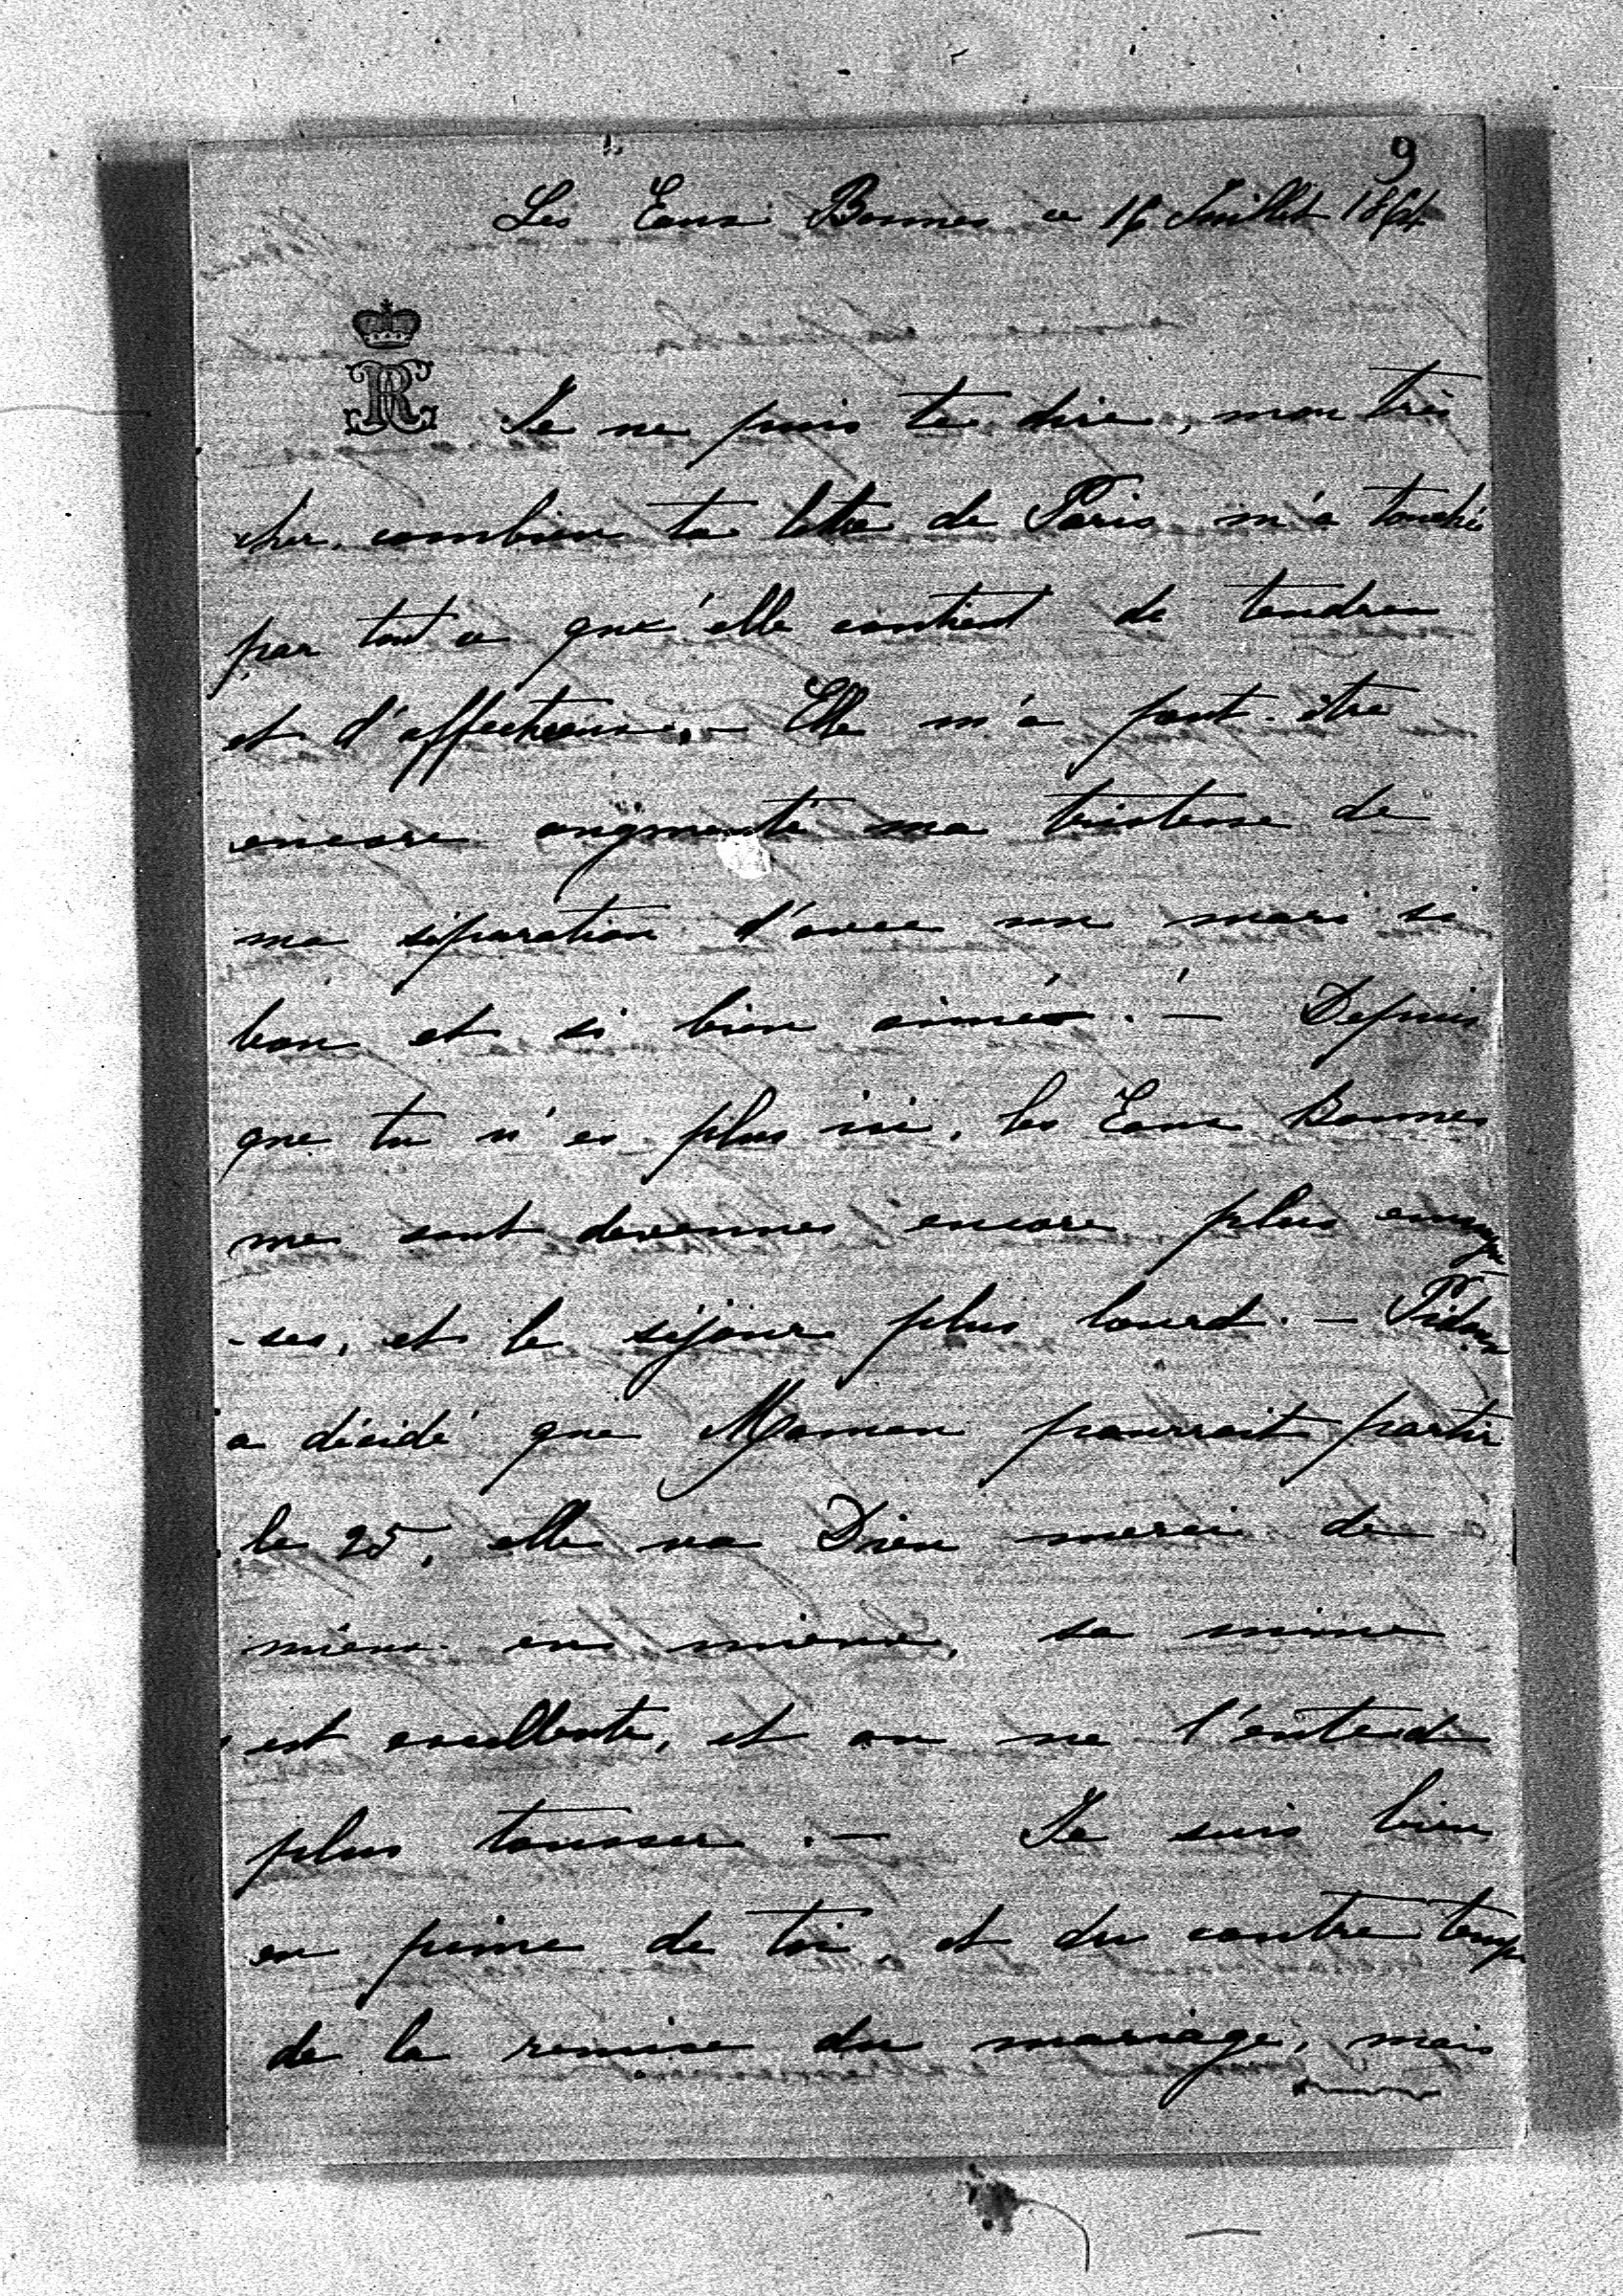 9
Les Eaux Bonnes ce 16 Juillet 1864
R
Je ne puis te dire, mon très
cher, combien ta lettre de Paris m'a touché
par tout ce que'elle contient de tendres
et d'affectueux. — Elle m'a peut-être
encore augmenté ma tristesse de
ma séparation d'avec un mari si
bon et si bien aimé. — Depuis
que tu n'es plus ici, les Eaux Bonnes
me sont devenues encore plus ennuyeu
-ses, et le séjour plus lourd. — Pidoux
a décidé que Maman pourrait partir
le 25, elle va Dieu merci de
mieux en mieux, sa mine
est excellente, et on ne l'entend
plus tousser. — Je suis bien
en peine de toi, et du contre temps
de la remise du mariage, mais